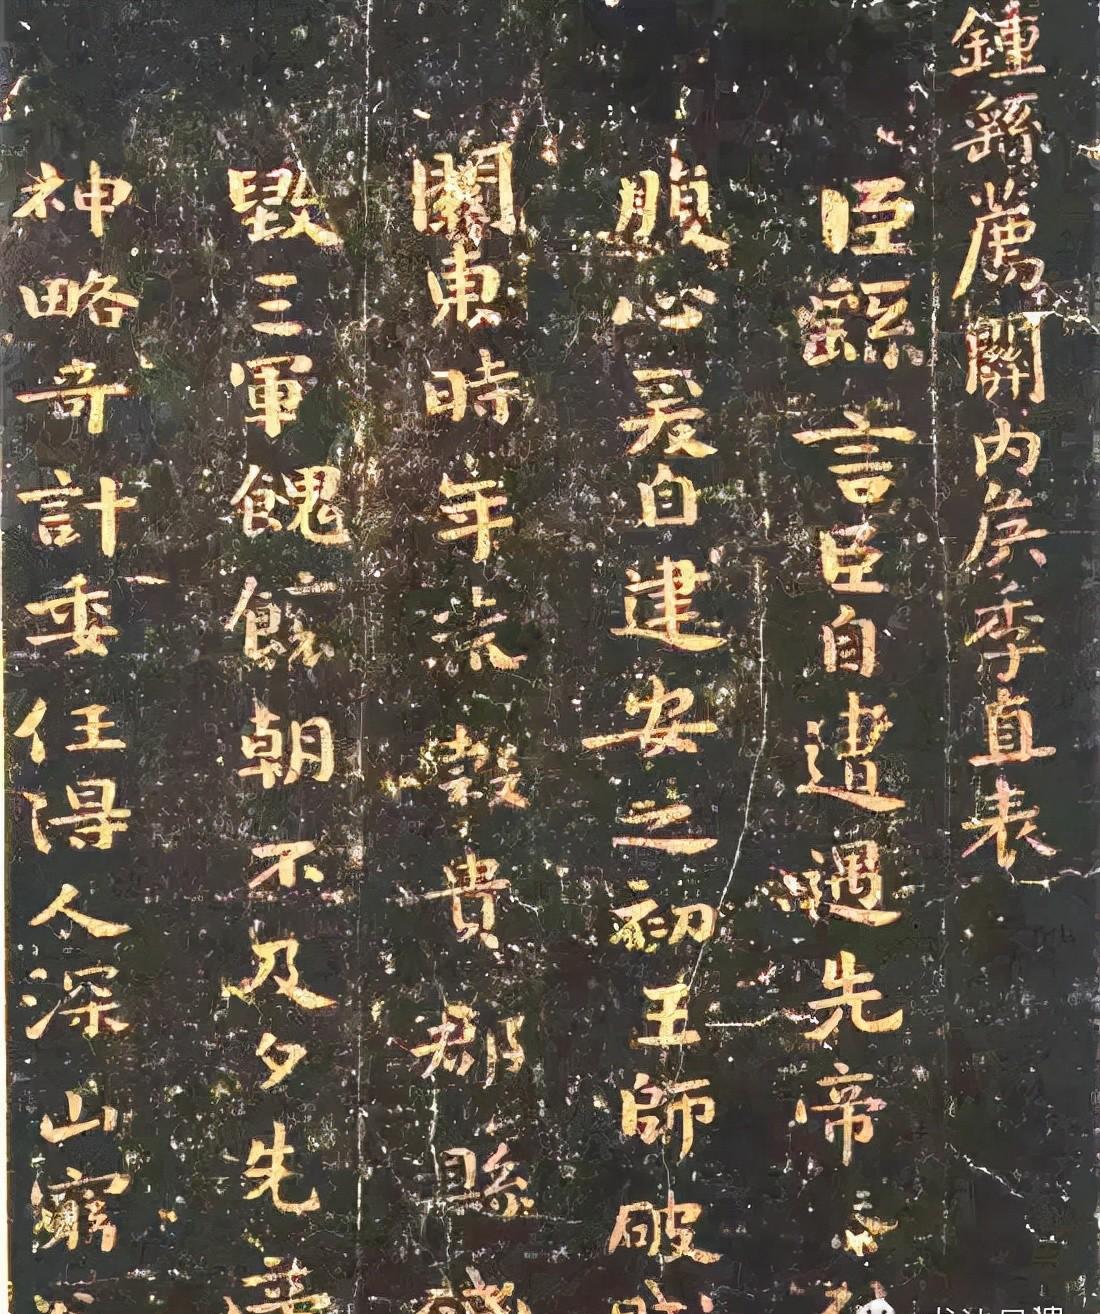 鍾繇薦關内侯季直表
臣繇言臣自遭遇先帝
腹心爰自建安之初王師破
關東時年荒穀貴郡縣殘
毀三軍餽饟朝不及夕先帝
神略奇計委任得人深山窮